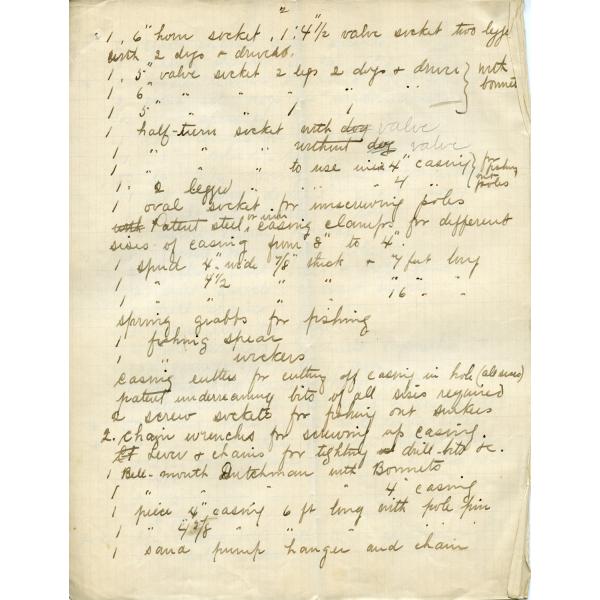 2
1, 6" horn socket, 1. 4 1/2 valve socket two legs
with 2 dogs & drive
1, 5" valve socket 2 legs 2 dogs & drive } with
1 6" " " " " " } bonnets
1 5" " " 1 1 "
1 half-turn socket with dog valve
1 " " " without dog valve
1 " " " to use in 4" casing } for fishing
1. 2 legged " " " 4 " } out poles
1 oval socket for unscrewing poles
with Patent steel or iron casing clamps for different
sises of casing from 8" to 4".
1 spud 4" wide 7/8" thick & 7 feet long
1 " 4 1/2 " " "
1 " " " " 16 " "
spring grabbs for fishing
1 fishing spear
1 " wickers
casing cutter for cutting off casing in hole (all sises)
patent underreaming bits of all sises required
2 screw sockets for fishing out sinkers
2. chain wrenches for screwing up casing.
Lever & chains for tighting drill-bits &c.
1 Bell-mouth Dutchman with Bonnets
1 " " " " 4" casing
1 piece 4" casing 6 ft long with pole pin
1 " 4 5/8 " " " "
1 sand pump hanger and chain